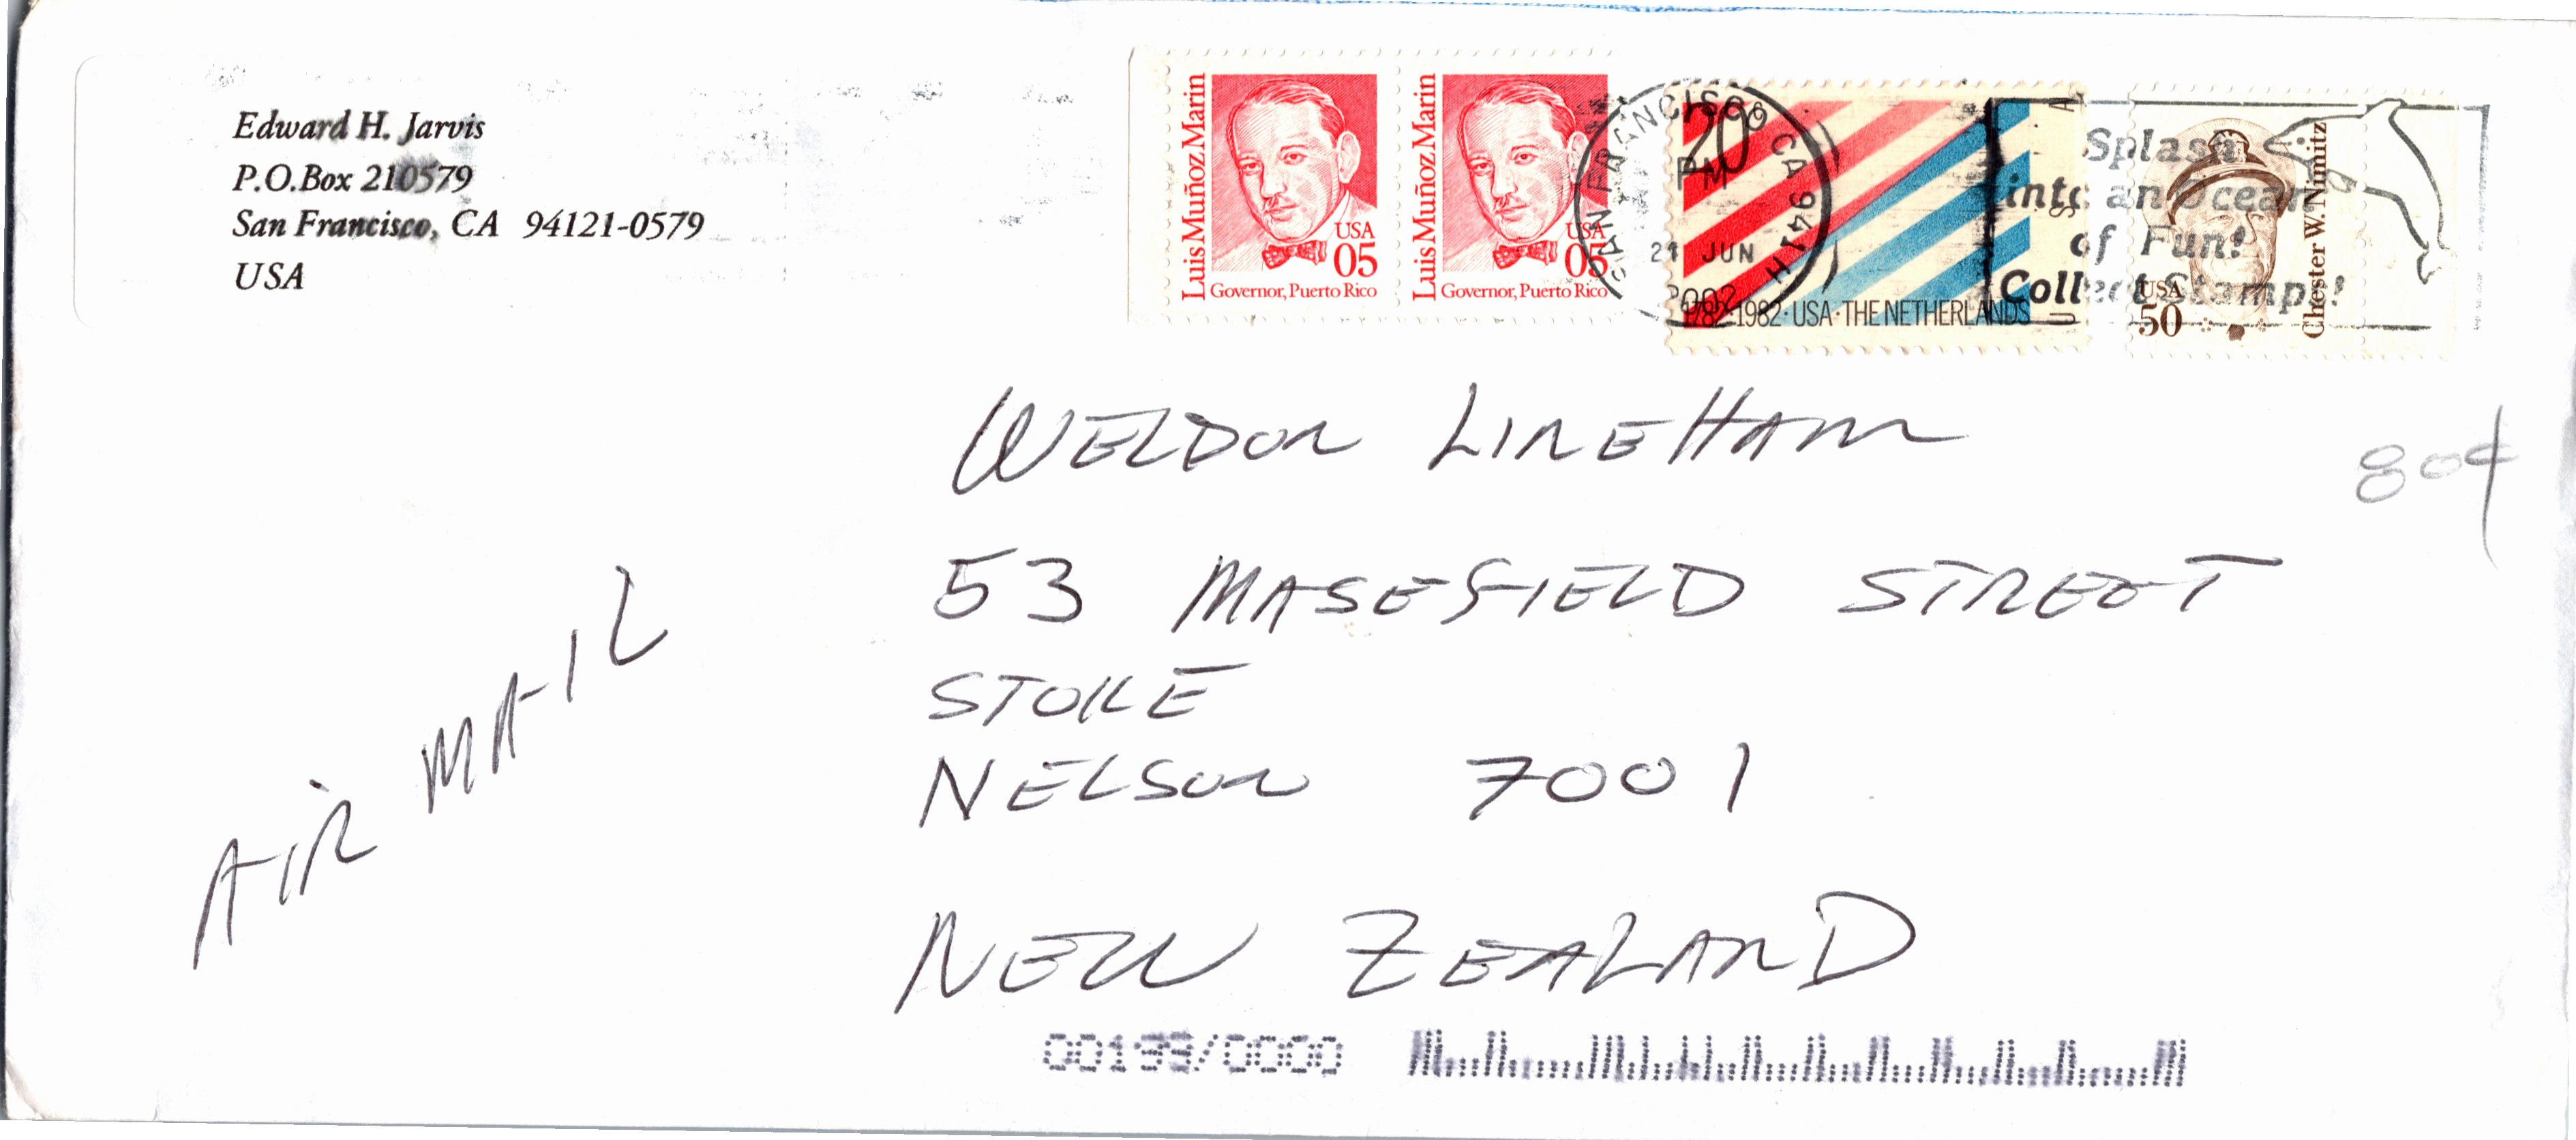 Edward H. Jarvis
P.O.Box 210579
San Francisco, CA 94121-0579
USA
Luis Muñoz Marin
USA
05
Governor, Puerto Rico
Luis Muñoz Marin
USA
05
Governor, Puerto Rico
SAN FRANCISCO CA 941 H
PM
21 JUN
2002
20c
1782·1982·USA·THE NETHERLANDS
Splash
into an Ocean
of Fun!
Collect Stamps!
USA
50
Chester W. Nimitz
80¢
WELDON LINEHAM
53 MASEFIELD STREET
STOKE
NELSON 7001
NEW ZEALAND
AIR MAIL